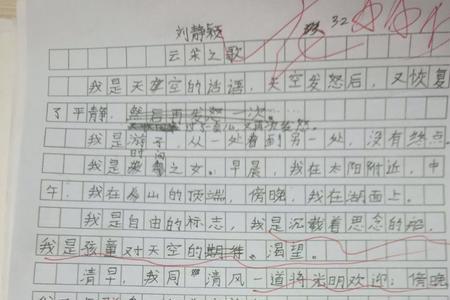 刘静颖
32
云朵之歌
我是天空的话语，天空发怒后，又恢复
了平静，然后再发怒一次。
我是游子，从一处看到另一处，没有终点。
我是时间之女。早晨，我在太阳附近，中
午，我在山的顶端，傍晚，我在湖面上。
我是自由的标志，我是沉载着思念的船，
我是孩童对天空的期待、渴望。
清早，我同清风一道将光明欢迎；傍晚